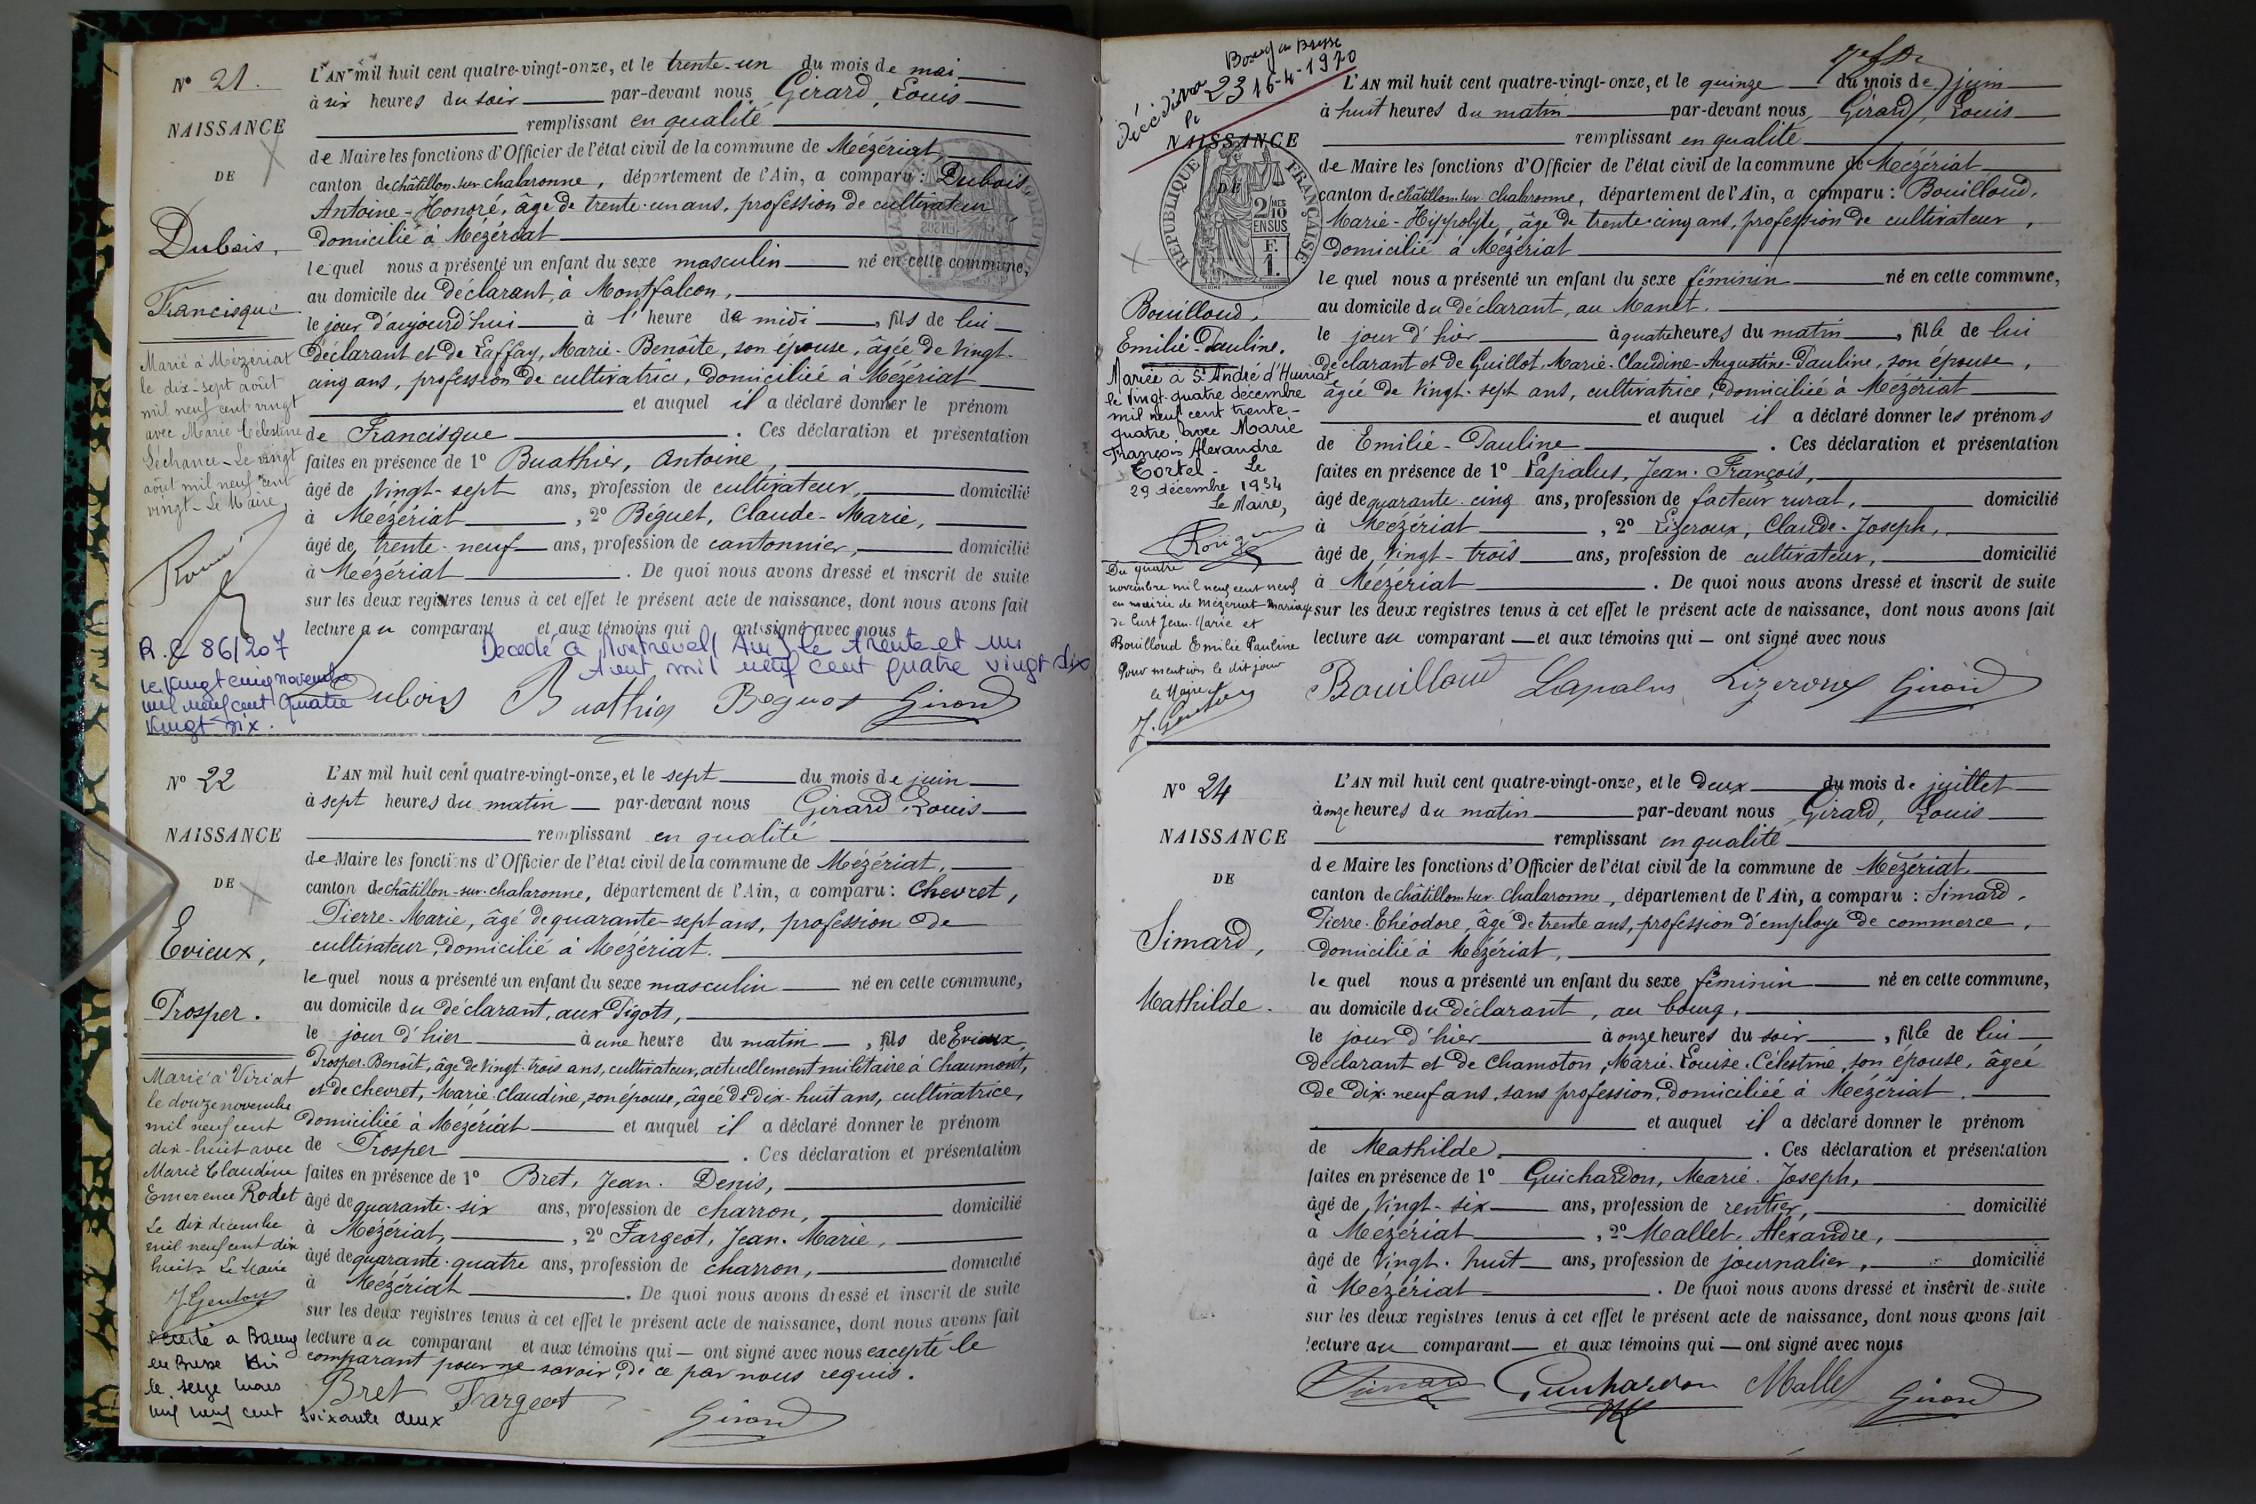 N° 21.
NAISSANCE
DE
Dubois,
Francisque
Marié à Mézériat
le dix-sept août
mil neuf cent vingt
avec Marie Célestine
Séchance _ Le vingt
août mil neuf cent
vingt _ Le Maire,
R.C 86/207
le vingt cinq novembre
mil neuf cent quatre
vingt six.
L'AN mil huit cent quatre-vingt-onze, et le trente-un du mois de mai
à six heures du soir par-devant nous Girard, Louis
remplissant en qualité
de Maire les fonctions d'Officier de l'état civil de la commune de Mézériat,
canton de châtillon-sur-chalaronne, département de l'Ain, a comparu : Dubois
Antoine-Honoré, âgé de trente-un ans, profession de cultivateur,
domicilié à Mézériat
lequel nous a présenté un enfant du sexe masculin né en cette commune,
au domicile du déclarant, à Montfalcon,
le jour d'aujourd'hui à l'heure de midi, fils de lui
déclarant et de Laffay, Marie-Benoîte, son épouse, âgée de vingt-
cinq ans, profession de cultivatrice, domiciliée à Mézériat
et auquel il a déclaré donner le prénom
de Francisque. Ces déclaration et présentation
faites en présence de 1° Buathier, Antoine,
âgé de vingt-sept ans, profession de cultivateur, domicilié
à Mézériat, 2° Béguet, Claude-Marie,
âgé de trente-neuf ans, profession de cantonnier, domicilié
à Mézériat. De quoi nous avons dressé et inscrit de suite
sur les deux registres tenus à cet effet le présent acte de naissance, dont nous avons fait
lecture au comparant et aux témoins qui ont signé avec nous
Décédé à Montrevel (Ain) le trente et un
août mil neuf cent quatre vingt six
Dubois Buathier Beguet Girard
N° 22
NAISSANCE
DE
Evieux,
Prosper.
Marié à Viriat
le douze novembre
mil neuf cent
dix-huit avec
Marie Claudine
Emerence Rodet
Le dix décembre
mil neuf cent dix
huit. Le Maire
J. Genton
Décédé à Bourg
en Bresse Ain
le seize mars
mil neuf cent soixante deux
L'AN mil huit cent quatre-vingt-onze, et le sept du mois de juin
à sept heures du matin par-devant nous Girard Louis
remplissant en qualité
de Maire les fonctions d'Officier de l'état civil de la commune de Mézériat,
canton de châtillon-sur-chalaronne, département de l'Ain, a comparu : Chevret,
Pierre-Marie, âgé de quarante-sept ans, profession de
cultivateur, domicilié à Mézériat.
lequel nous a présenté un enfant du sexe masculin né en cette commune,
au domicile du déclarant, aux Pigots,
le jour d'hier à une heure du matin, fils de Evieux,
Prosper-Benoît, âgé de vingt-trois ans, cultivateur, actuellement militaire à Chaumont,
et de chevret, Marie-Claudine, son épouse, âgée de dix-huit ans, cultivatrice,
domiciliée à Mézériat et auquel il a déclaré donner le prénom
de Prosper. Ces déclaration et présentation
faites en présence de 1° Bret, Jean-Denis,
âgé de quarante-six ans, profession de charron, domicilié
à Mézériat, 2° Fargeot, Jean-Marie,
âgé de quarante-quatre ans, profession de charron, domicilié
à Mézériat. De quoi nous avons dressé et inscrit de suite
sur les deux registres tenus à cet effet le présent acte de naissance, dont nous avons fait
lecture au comparant et aux témoins qui ont signé avec nous excepté le
comparant pour ne savoir, de ce par nous requis.
Bret Fargeot
Girard
Bourg en Bresse
23 16-4-1970
NAISSANCE
DE
RÉPUBLIQUE FRANÇAISE
2/10 EN SUS
F. 1.
Bouilloud,
Emilie-Pauline.
Mariée à St André d'Huiriat
le vingt-quatre décembre
mil neuf cent trente-
quatre avec Marie
François Alexandre
Tortel. Le
29 décembre 1934
Le Maire,
Du quatre
novembre mil neuf cent neuf
en mairie de Mézériat Mariage
de Curt Jean-Marie et
Bouilloud Emilie Pauline
Pour mention le dit jour
le Maire
J. Genton
L'AN mil huit cent quatre-vingt-onze, et le quinze du mois de juin
à huit heures du matin par-devant nous Girard, Louis
remplissant en qualité
de Maire les fonctions d'Officier de l'état civil de la commune de Mézériat
canton de châtillon-sur-chalaronne, département de l'Ain, a comparu : Bouilloud,
Marie-Hippolyte, âgé de trente-cinq ans, profession de cultivateur,
domicilié à Mézériat
lequel nous a présenté un enfant du sexe féminin né en cette commune,
au domicile du déclarant, au Manet.
le jour d'hier à quatre heures du matin, fille de lui
déclarant et de Guillot, Marie-Claudine-Augustine-Pauline, son épouse,
âgée de vingt-sept ans, cultivatrice, domiciliée à Mézériat
et auquel il a déclaré donner les prénoms
de Emilie-Pauline. Ces déclaration et présentation
faites en présence de 1° Lapalus, Jean-François,
âgé de quarante-cinq ans, profession de facteur rural, domicilié
à Mézériat, 2° Lizeroux, Claude-Joseph,
âgé de vingt-trois ans, profession de cultivateur, domicilié
à Mézériat. De quoi nous avons dressé et inscrit de suite
sur les deux registres tenus à cet effet le présent acte de naissance, dont nous avons fait
lecture au comparant et aux témoins qui ont signé avec nous
Bouilloud Lapalus Lizeroux Girard
N° 24
NAISSANCE
DE
Simard,
Mathilde.
L'AN mil huit cent quatre-vingt-onze, et le deux du mois de juillet
à onze heures du matin par-devant nous Girard, Louis
remplissant en qualité
de Maire les fonctions d'Officier de l'état civil de la commune de Mézériat.
canton de châtillon-sur-chalaronne, département de l'Ain, a comparu : Simard,
Pierre-Théodore, âgé de trente ans, profession d'employé de commerce,
domicilié à Mézériat,
lequel nous a présenté un enfant du sexe féminin né en cette commune,
au domicile du déclarant, au bourg,
le jour d'hier à onze heures du soir, fille de lui
déclarant et de Chamoton, Marie-Louise-Célestine, son épouse, âgée
de dix-neuf ans, sans profession, domiciliée à Mézériat.
et auquel il a déclaré donner le prénom
de Mathilde. Ces déclaration et présentation
faites en présence de 1° Guichardon, Marie-Joseph,
âgé de vingt-six ans, profession de rentier, domicilié
à Mézériat, 2° Mallet, Alexandre,
âgé de vingt-huit ans, profession de journalier, domicilié
à Mézériat. De quoi nous avons dressé et inscrit de suite
sur les deux registres tenus à cet effet le présent acte de naissance, dont nous avons fait
lecture au comparant et aux témoins qui ont signé avec nous
Simard Guichardon Mallet Girard